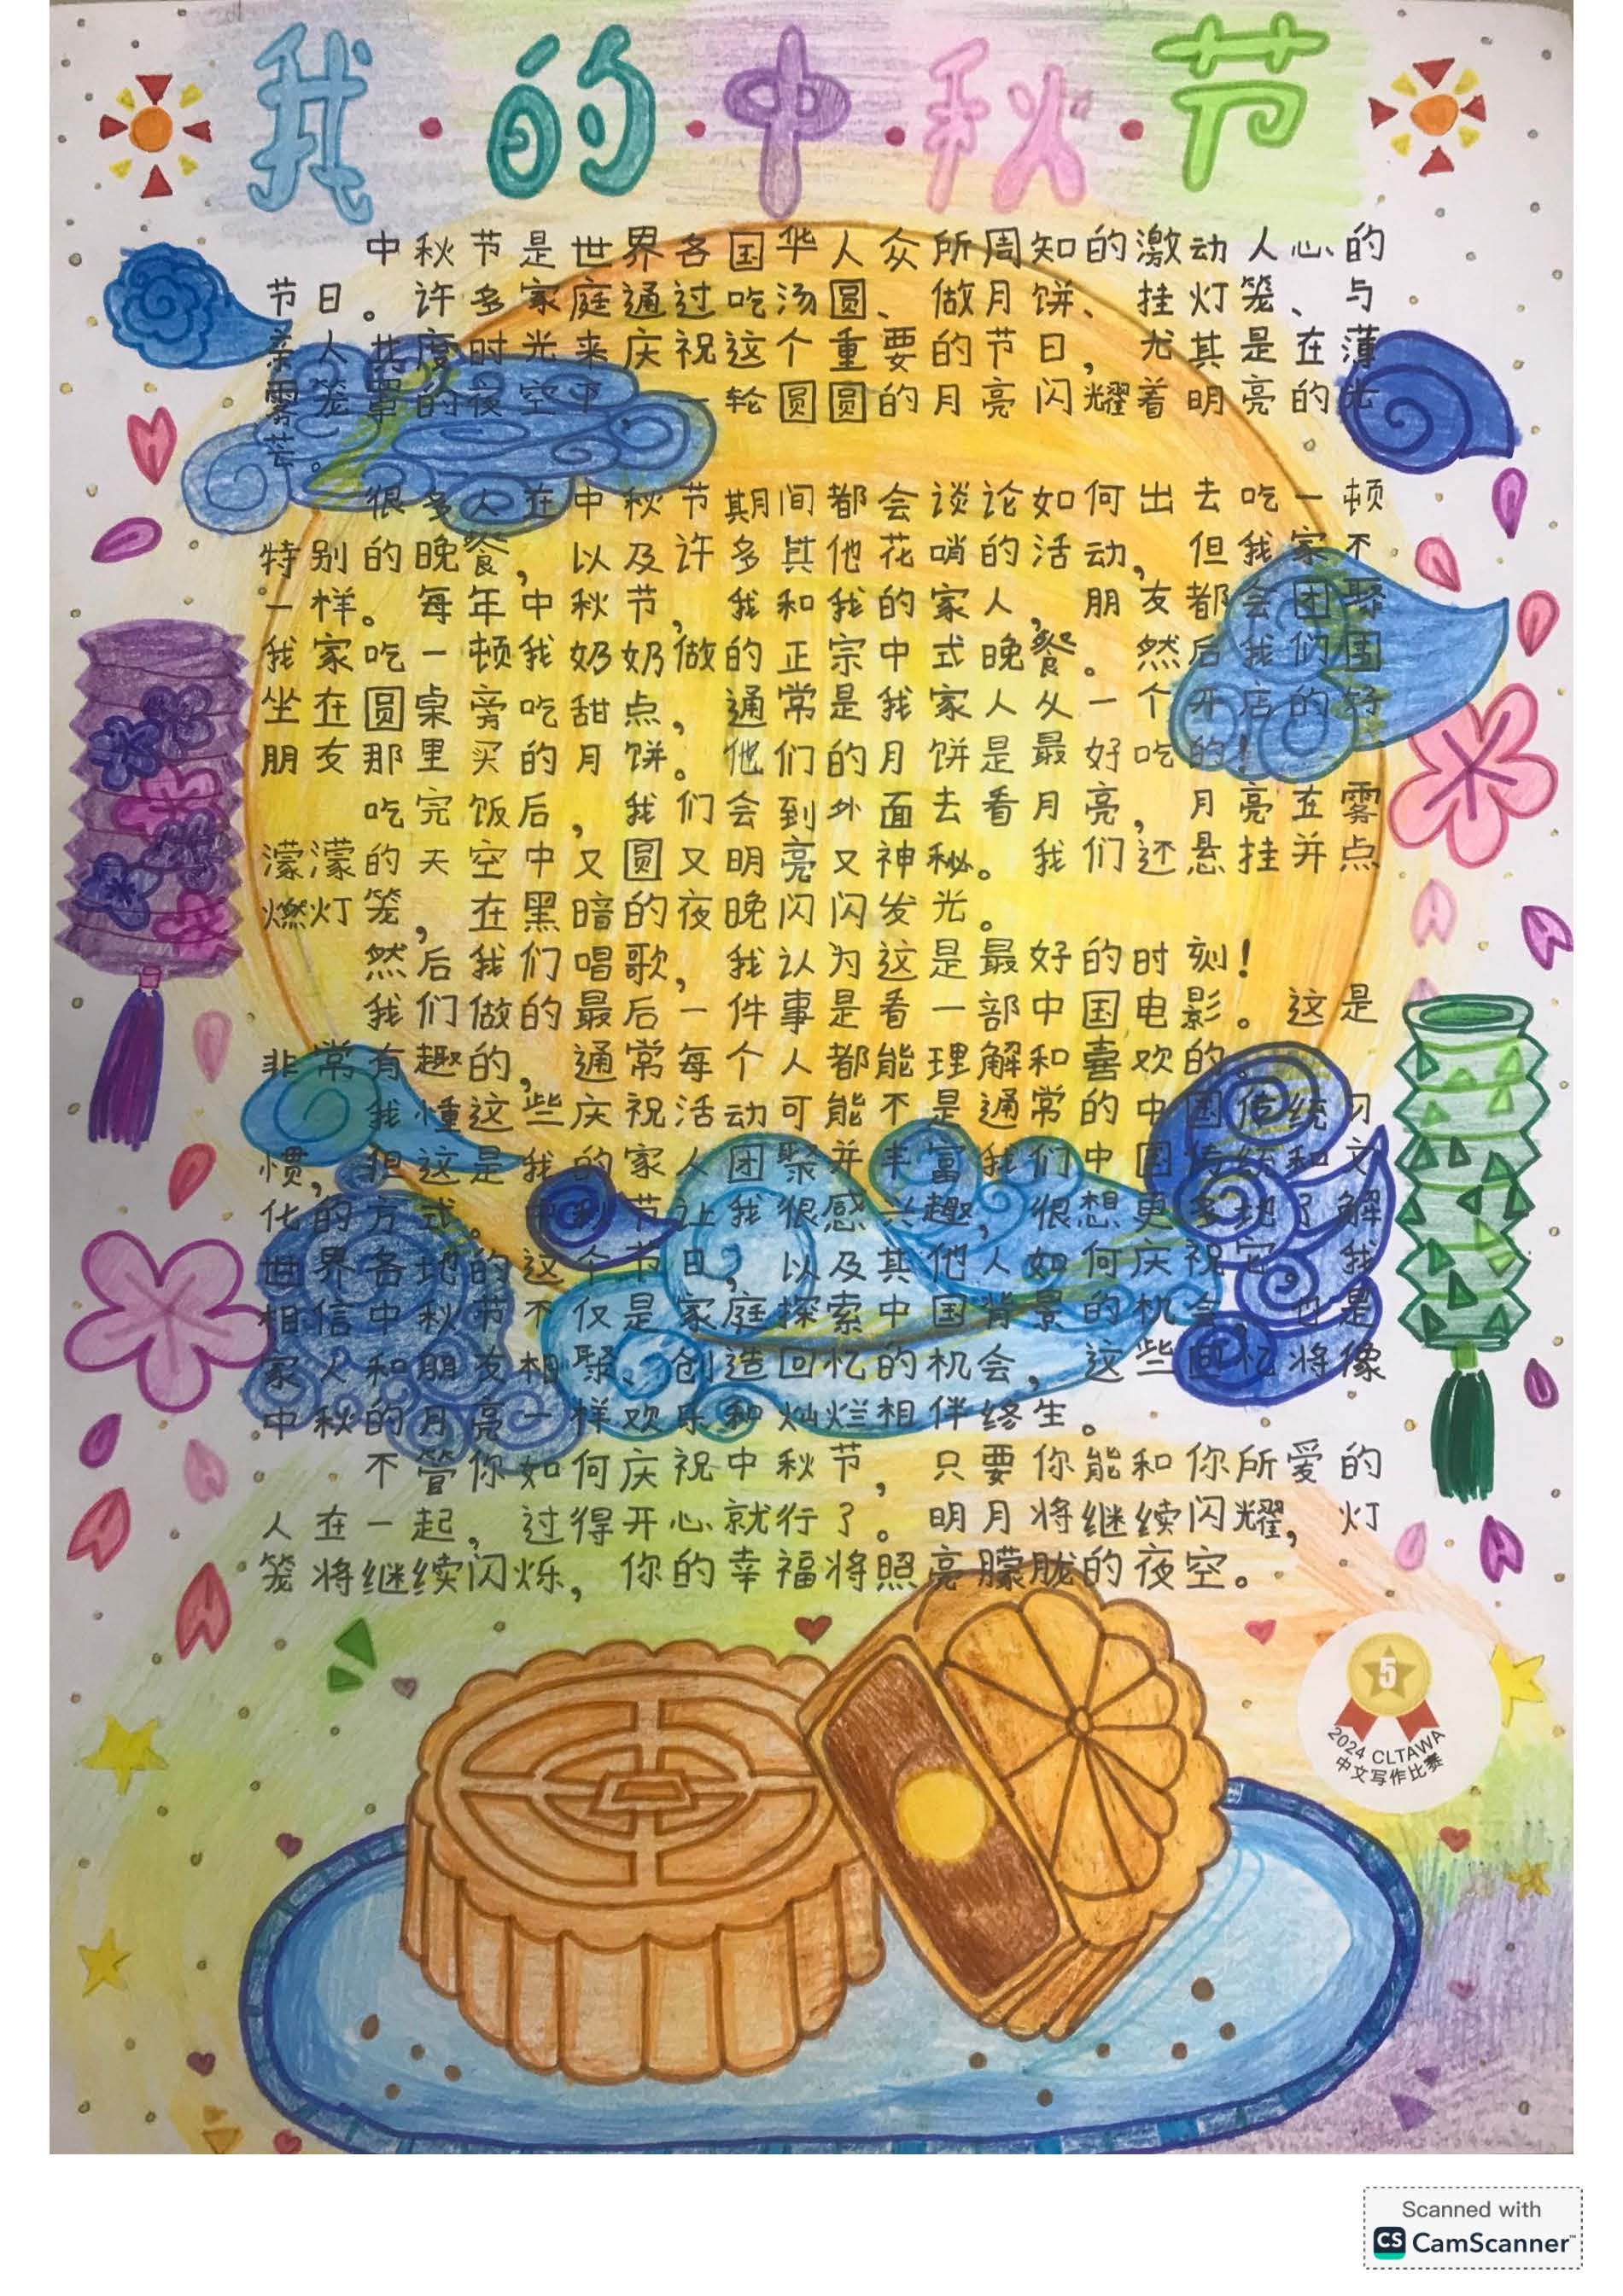 我·的·中·秋·节
中秋节是世界各国华人众所周知的激动人心的
节日。许多家庭通过吃汤圆、做月饼、挂灯笼、与
亲人共度时光来庆祝这个重要的节日，尤其是在薄
雾笼罩的夜空下，一轮圆圆的月亮闪耀着明亮的光
芒。
很多人在中秋节期间都会谈论如何出去吃一顿
特别的晚餐，以及许多其他花哨的活动，但我家不
一样。每年中秋节，我和我的家人，朋友都会团聚
我家吃一顿我奶奶做的正宗中式晚餐。然后我们围
坐在圆桌旁吃甜点，通常是我家人从一个开店的好
朋友那里买的月饼。他们的月饼是最好吃的！
吃完饭后，我们会到外面去看月亮，月亮在雾
濛濛的天空中又圆又明亮又神秘。我们还悬挂并点
燃灯笼，在黑暗的夜晚闪闪发光。
然后我们唱歌，我认为这是最好的时刻！
我们做的最后一件事是看一部中国电影。这是
非常有趣的，通常每个人都能理解和喜欢的。
我懂这些庆祝活动可能不是通常的中国传统习
惯，但这是我的家人团聚并丰富我们中国传统和文
化的方式。中秋节让我很感兴趣，很想更多地了解
世界各地的这个节日，以及其他人如何庆祝它，我
相信中秋节不仅是家庭探索中国背景的机会，也是
家人和朋友相聚、创造回忆的机会，这些回忆将像
中秋的月亮一样欢乐和灿烂相伴终生。
不管你如何庆祝中秋节，只要你能和你所爱的
人在一起，过得开心就行了。明月将继续闪耀，灯
笼将继续闪烁，你的幸福将照亮朦胧的夜空。
5
2024 CLTAWA
中文写作比赛
Scanned with
CS CamScanner™